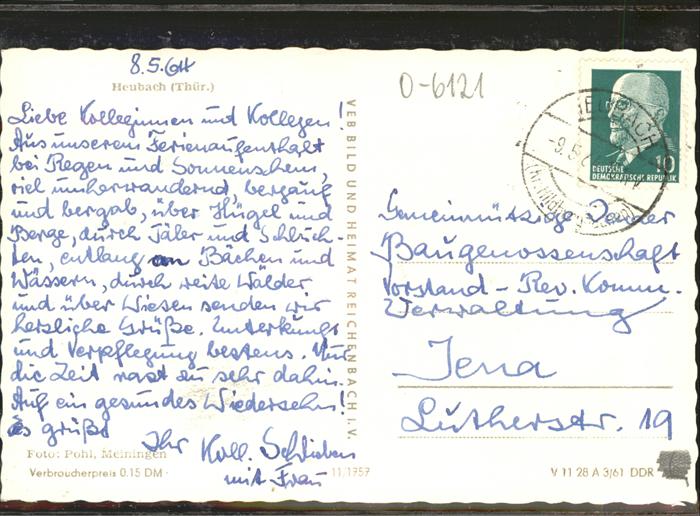 8.5.64
Heubach (Thür.)
Liebe Kolleginnen und Kollegen!
Aus unserem Ferienaufenthalt
bei Regen und Sonnenschein,
viel umherwandernd, bergauf
und bergab, über Hügel und
Berge, durch Täler und Schluch-
ten, entlang an Bächen und
Wässern, durch weite Wälder
und über Wiesen senden wir
herzliche Grüße. Unterkunft
und Verpflegung bestens. Nur
die Zeit rast zu sehr dahin.
Auf ein gesundes Wiedersehn!
Es grüßt
Ihr Koll. Schlieben
mit Frau
Foto: Pohl, Meiningen
Verbraucherpreis 0.15 DM
11/1957
VEB BILD UND HEIMAT REICHENBACH I. V.
0-6121
HEUBACH
-9.5.
10
DEUTSCHE
DEMOKRATISCHE REPUBLIK
Gemeinnützige
Baugenossenschaft
Vorstand - Rev. Komm.
Verwaltung
Jena
Lutherstr. 19
V 11 28 A 3/61 DDR